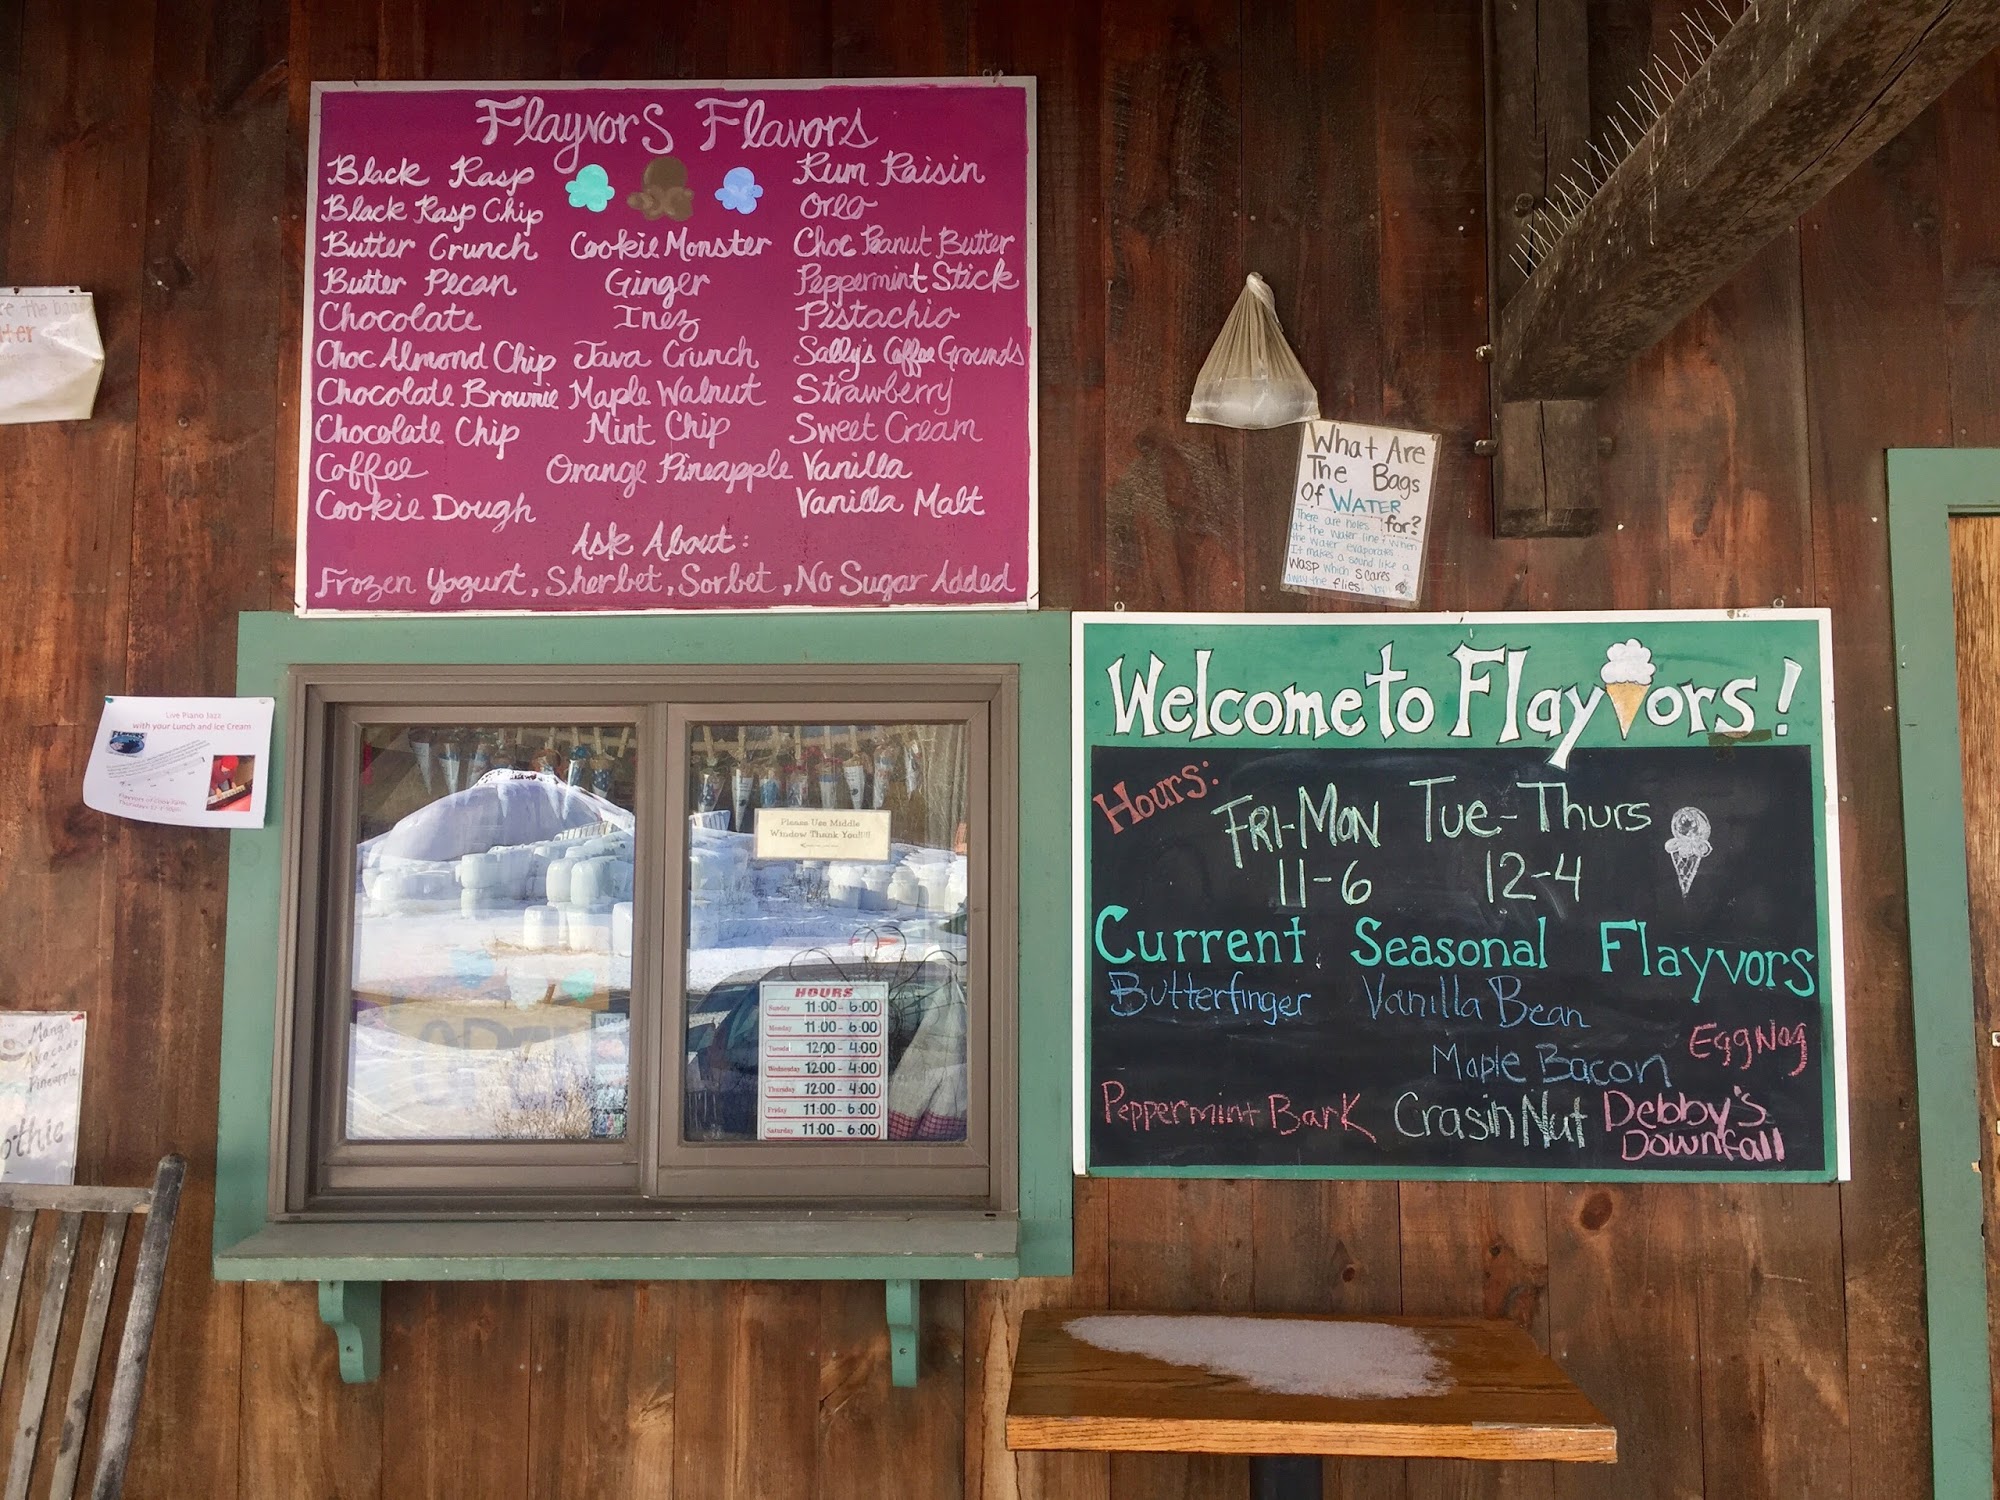 Flayvors Flavors
Black Rasp
Black Rasp Chip
Butter Crunch
Butter Pecan
Chocolate
Choc Almond Chip
Chocolate Brownie
Chocolate Chip
Coffee
Cookie Dough
Cookie Monster
Ginger
Inez
Java Crunch
Maple Walnut
Mint Chip
Orange Pineapple
Rum Raisin
Oreo
Choc Peanut Butter
Peppermint Stick
Pistachio
Sally's Coffee Grounds
Strawberry
Sweet Cream
Vanilla
Vanilla Malt
Ask About:
Frozen Yogurt, Sherbet, Sorbet, No Sugar Added
What Are
The Bags
Of WATER
for?
There are holes
at the water line & when
the water evaporates
It makes a sound like a
wasp which scares
away the flies!
Live Piano Jazz
with your Lunch and Ice Cream
Please Use Middle
Window Thank You!!!!
HOURS
Sunday 11:00 - 6:00
Monday 11:00 - 6:00
Tuesday 12:00 - 4:00
Wednesday 12:00 - 4:00
Thursday 12:00 - 4:00
Friday 11:00 - 6:00
Saturday 11:00 - 6:00
Welcome to Flayvors!
Hours:
Fri-Mon Tue-Thurs
11-6 12-4
Current Seasonal Flayvors
Butterfinger Vanilla Bean
Egg Nog
Maple Bacon
Peppermint Bark Crasin Nut Debby's
Downfall
Mango
Avocado
Pineapple